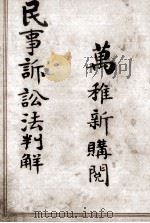 萬稚新購閱
民事訴訟法判解
www.mtoou.info